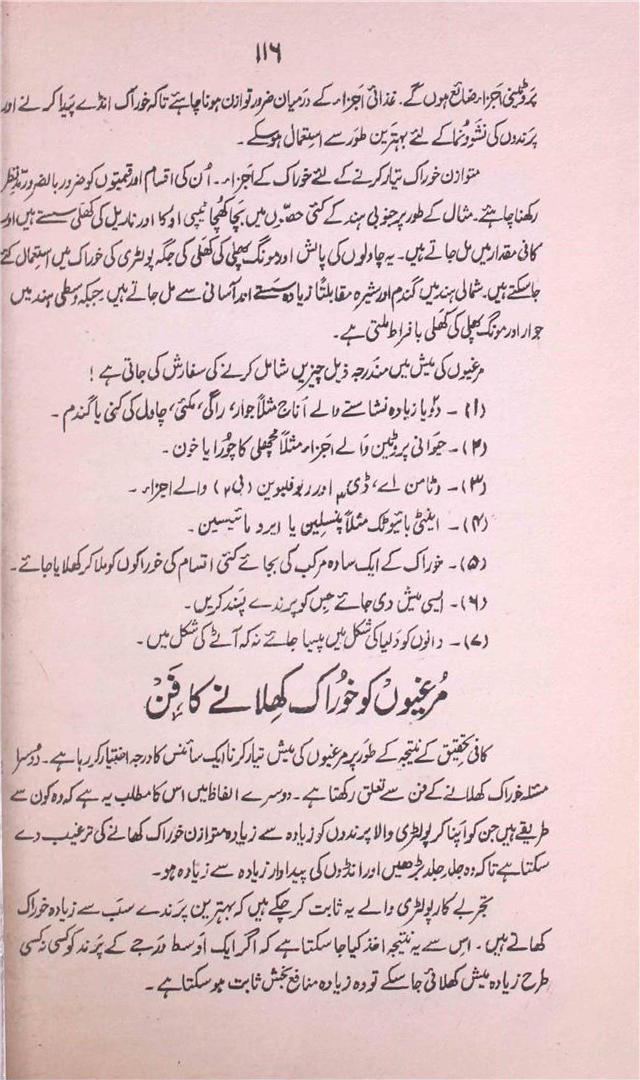 ۱۱۶
پروٹینی اجزاء ضائع ہوں گے۔ غذائی اجزاء کے درمیان ضرور توازن ہونا چاہئے تاکہ خوراک انڈے پیدا کرنے اور
پرندوں کی نشوونما کے لئے بہترین طور سے استعمال ہوسکے۔
متوازن خوراک تیار کرنے کے لئے خوراک کے اجزاء۔ اُن کی اقسام اور قیمتوں کو ضرور بالضرور مدِنظر
رکھنا چاہئے۔ مثال کے طور پر جنوبی ہند کے کئی حصوں میں بچا کھچا ٹیپی اوکا اور ناریل کی کھلی سستے ہیں اور
کافی مقدار میں مل جاتے ہیں۔ یہ چاولوں کی پالش اور مونگ پھلی کی کھلی کی جگہ پولٹری کی خوراک میں استعمال کئے
جاسکتے ہیں۔ شمالی ہند میں گندم اور شیرہ مقابلتاً زیادہ سستے اور آسانی سے مل جاتے ہیں۔ جبکہ وسطی ہند میں
جوار اور مونگ پھلی کی کھلی بافراط ملتی ہے۔
مرغیوں کی میش میں مندرجہ ذیل چیزیں شامل کرنے کی سفارش کی جاتی ہے!
(۱)۔ دو یا زیادہ نشاستے والے اناج مثلاً جوار، راگی، مکئی، چاول کی کنی یا گندم۔
(۲)۔ حیوانی پروٹین والے اجزاء مثلاً مچھلی کا چورا یا خون۔
(۳)۔ وٹامن اے، ڈی۳ اور ربوفلیوین (بی۲) والے اجزاء۔
(۴)۔ اینٹی بائیوٹک مثلاً پنسلین یا ایرو مائیسین۔
(۵)۔ خوراک کے ایک سادہ مرکب کی بجائے کئی اقسام کی خوراکوں کو ملا کر کھلایا جائے۔
(۶)۔ ایسی میش دی جائے جس کو پرندے پسند کریں۔
(۷)۔ دانوں کو دلیا کی شکل میں پیسا جائے نہ کہ آٹے کی شکل میں۔
مُرغیوں کو خوُراک کھِلانے کا فن
کافی تحقیق کے نتیجہ کے طور پر مرغیوں کی میش تیار کرنا ایک سائنس کا درجہ اختیار کر رہا ہے۔ دُوسرا
مسئلہ خوراک کھلانے کے فن سے تعلق رکھتا ہے۔ دوسرے الفاظ میں اس کا مطلب یہ ہے کہ وہ کون سے
طریقے ہیں جن کو اپنا کر پولٹری والا پرندوں کو زیادہ سے زیادہ متوازن خوراک کھانے کی ترغیب دے
سکتا ہے تاکہ وہ جلد جلد بڑھیں اور انڈوں کی پیداوار زیادہ سے زیادہ ہو۔
تجربے کار پولٹری والے یہ ثابت کرچکے ہیں کہ بہترین پرندے سب سے زیادہ خوراک
کھاتے ہیں۔ اس سے یہ نتیجہ اخذ کیا جاسکتا ہے کہ اگر ایک اوسط درجے کے پرند کو کسی نہ کسی
طرح زیادہ میش کھلائی جاسکے تو وہ زیادہ منافع بخش ثابت ہوسکتا ہے۔